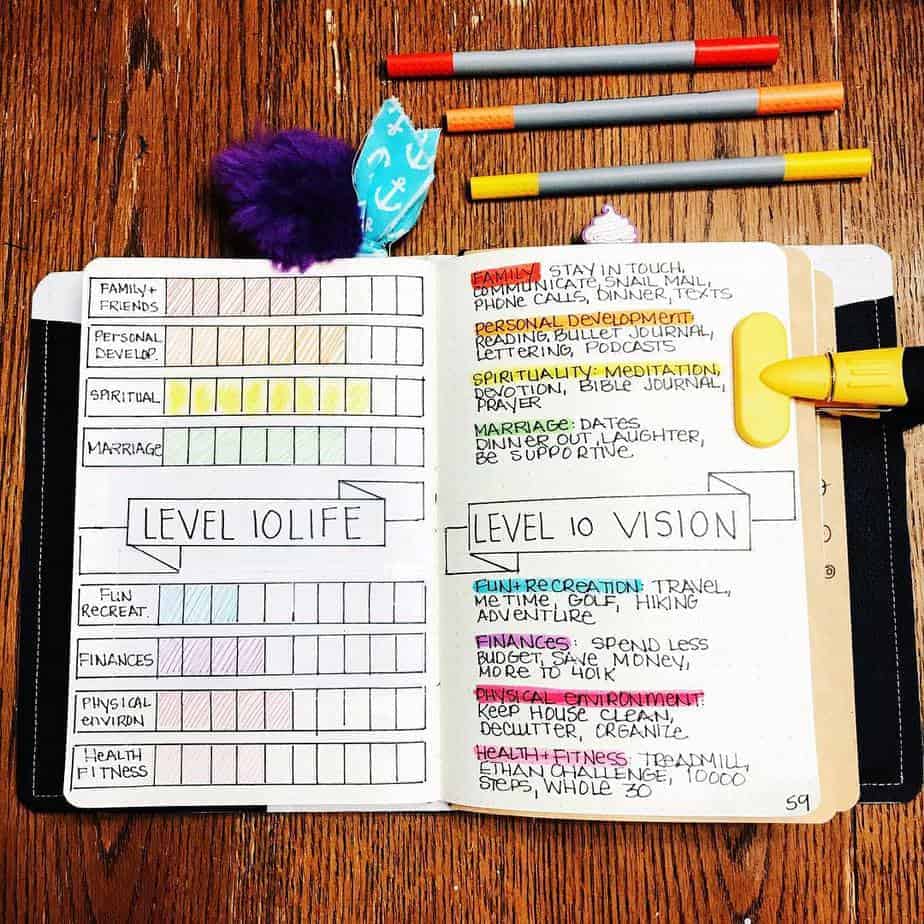 FAMILY +
FRIENDS
PERSONAL
DEVELOP.
SPIRITUAL
MARRIAGE
LEVEL 10 LIFE
FUN
RECREAT.
FINANCES
PHYSICAL
ENVIRON
HEALTH
FITNESS
FAMILY: STAY IN TOUCH,
COMMUNICATE, SNAIL MAIL,
PHONE CALLS, DINNER, TEXTS
PERSONAL DEVELOPMENT:
READING, BULLET JOURNAL,
LETTERING, PODCASTS
SPIRITUALITY: MEDITATION,
DEVOTION, BIBLE JOURNAL,
PRAYER
MARRIAGE: DATES
DINNER OUT, LAUGHTER,
BE SUPPORTIVE
LEVEL 10 VISION
FUN + RECREATION: TRAVEL,
ME TIME, GOLF, HIKING
ADVENTURE
FINANCES: SPEND LESS
BUDGET, SAVE MONEY,
MORE TO 401K
PHYSICAL ENVIRONMENT:
KEEP HOUSE CLEAN,
DECLUTTER, ORGANIZE
HEALTH + FITNESS: TREADMILL,
ETHAN CHALLENGE, 10000
STEPS, WHOLE 30
59